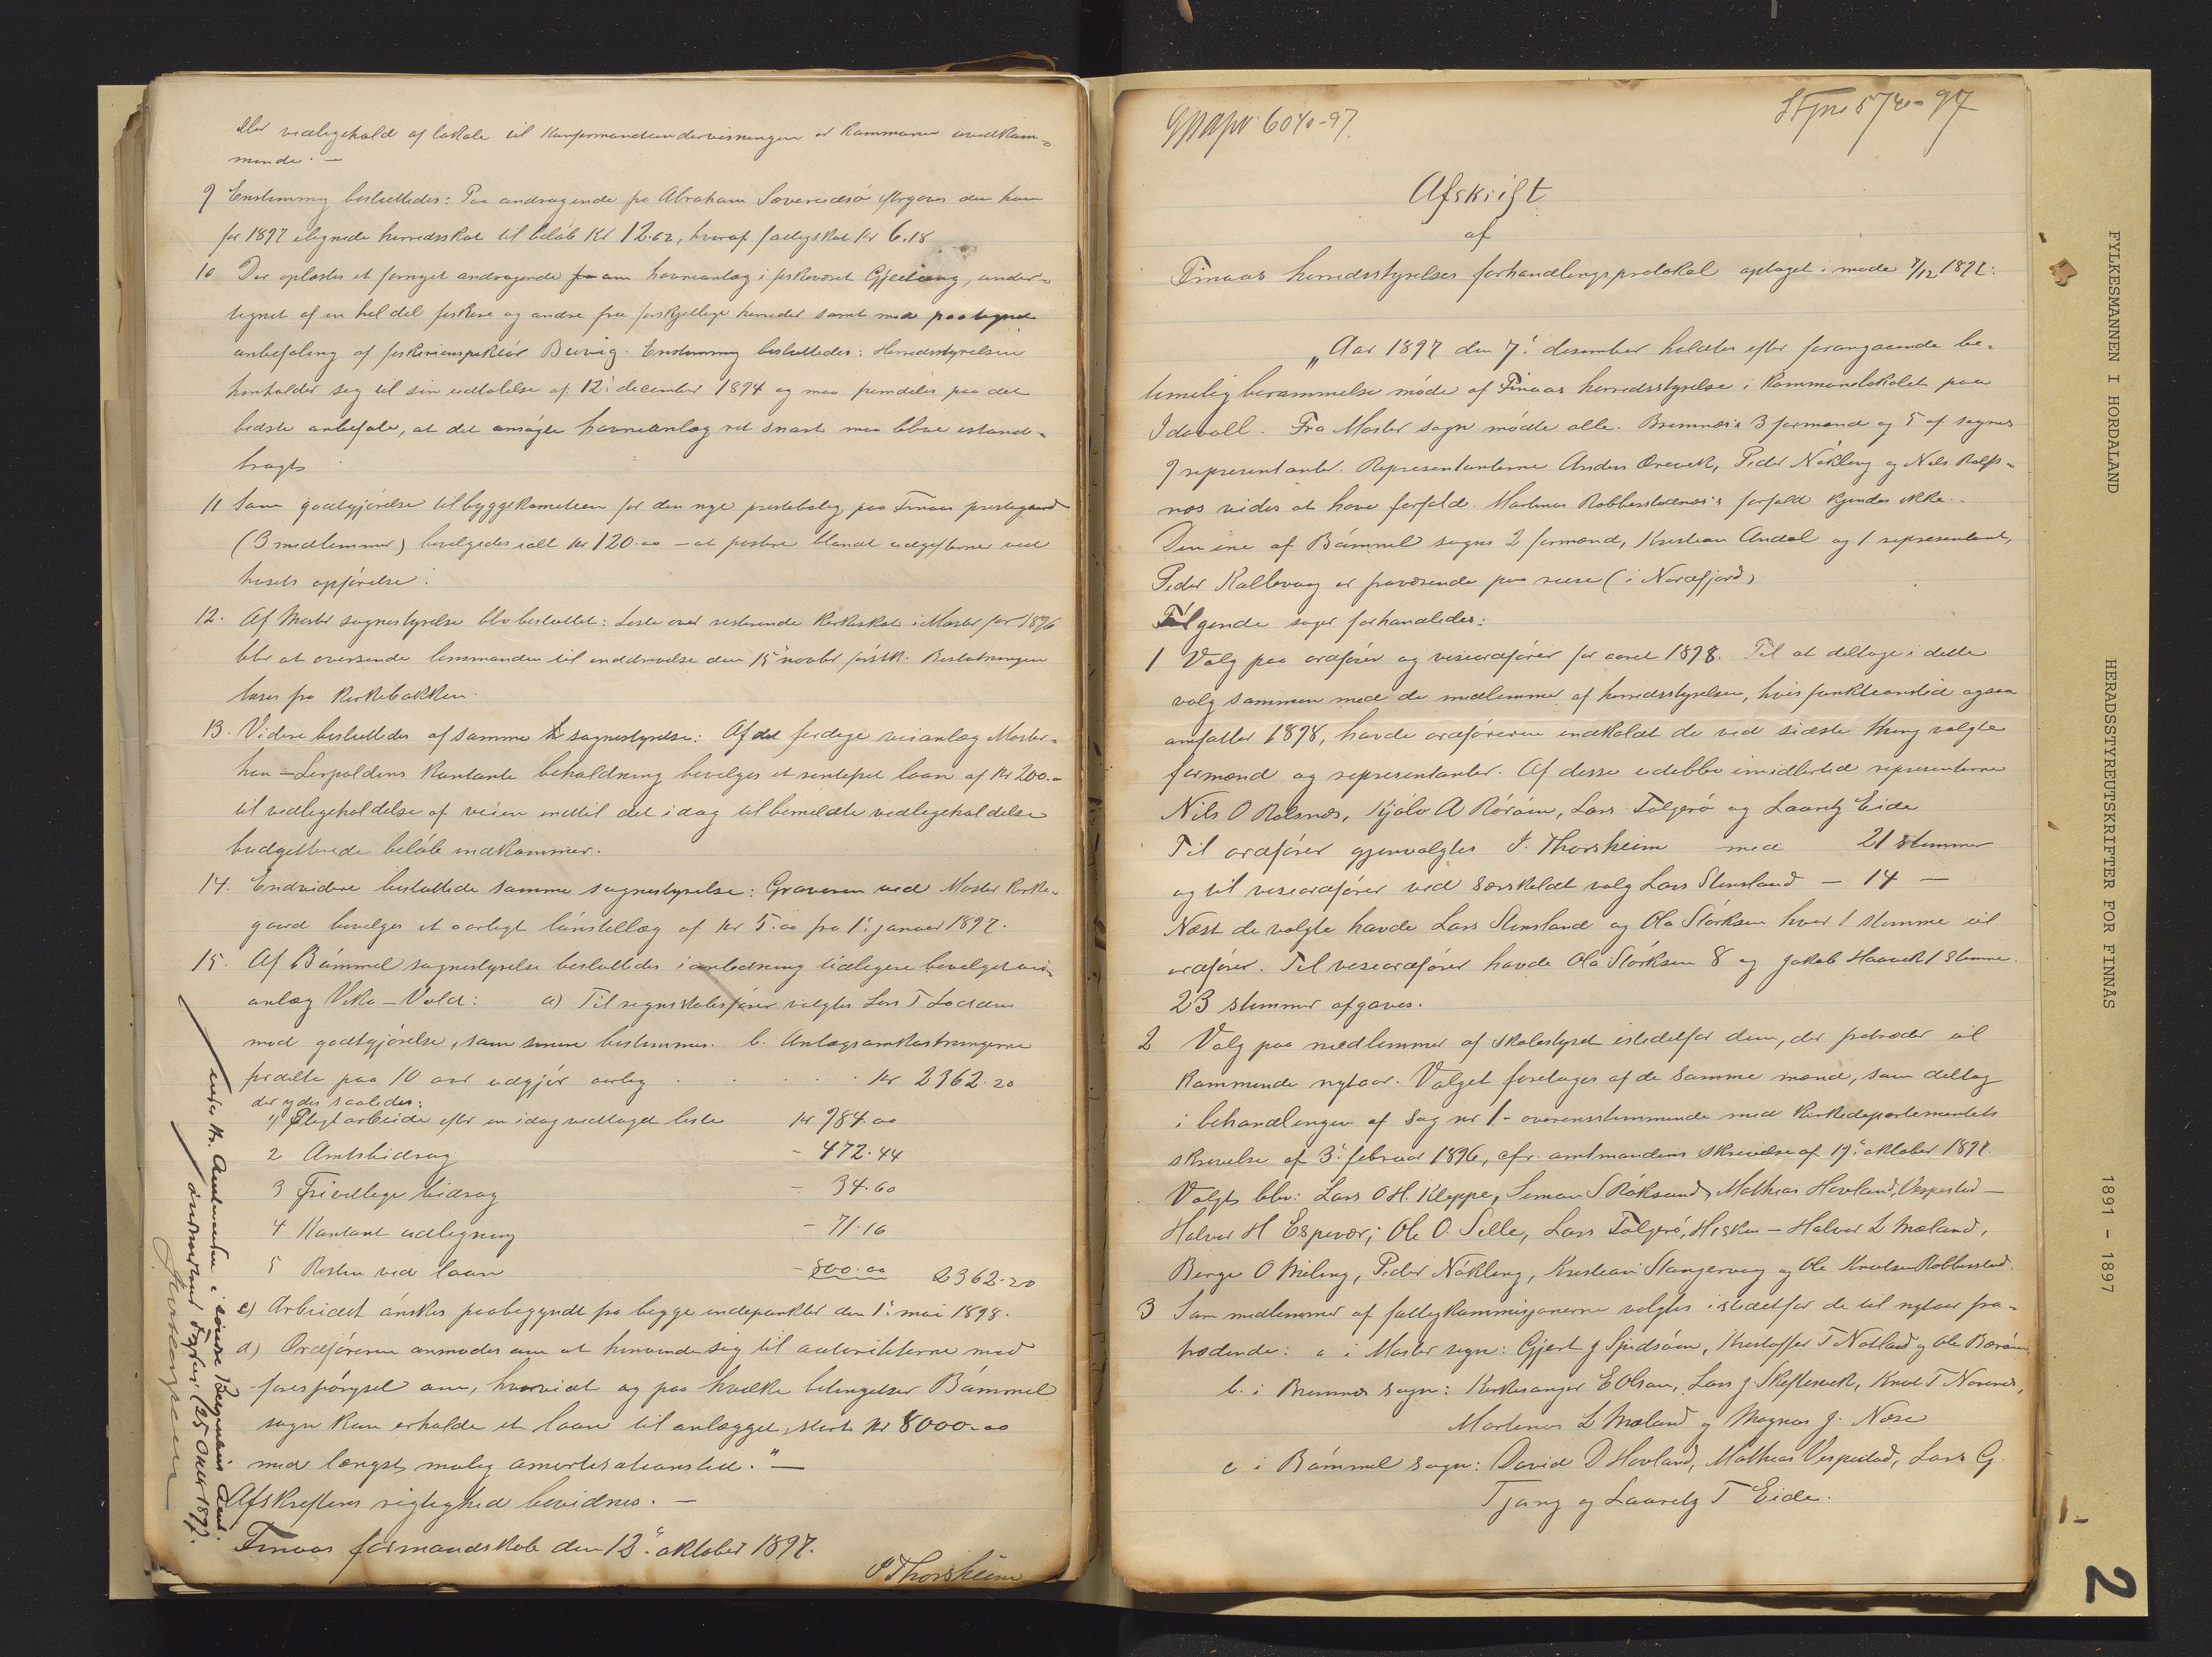 eller vedligehold af lokale til konfirmandundervisningen er kommunen uvedkom-
mende. -
9 Enstemmig besluttedes: Paa andragende fra Abraham Sovereidsø eftergaves den ham
for 1897 ilignede herredsskat til beløb kr 12.62, hvoraf fattigskat kr 6.18
10 Der oplæstes et fornyet andragende fra om havneanlæg i fiskeværet Gjeitung, under-
tegnet af en hel del fiskere og andre fra forskjellige herreder samt med paategnet
anbefaling af fiskeriinspektør Buvig. Enstemmig besluttedes: Herredsstyrelsen
henholder sig til sin udtalelse af 12' december 1894 og maa fremdeles paa det
bedste anbefale, at det ansøgte havneanlæg ret snart maa blive istand-
bragt
11 Som godtgjørelse til byggekomiteen for den nye prestebolig paa Finaas prestegaard
(3 medlemmer) bevilgedes ialt kr 120.00 - at postere blandt udgifterne ved
husets opførelse.
12. Af Moster sognestyrelse blev besluttet: Liste over resterende kirkeskat i Moster for 1896
blir at oversende lensmanden til inddrivelse den 15' novbr førstk. Beslutningen
læses fra kirkebakken.
13. Videre besluttedes af samme sognestyrelse: Af det ferdige veianlæg Moster-
havn - Leirpoldens kontante beholdning bevilges et rentefrit laan af kr 200.00
til vedligeholdelse af veien indtil det idag til bemeldte vedligeholdelse
budgetterede beløb indkommer.
14. Endvidere besluttede samme sognestyrelse: Graveren ved Moster kirke-
gaard bevilges et aarligt lønstillæg af kr 5.00 fra 1' januar 1897.
15. Af Bømmel sognestyrelse besluttedes i anledning tidligere bevilget vei-
anlæg Vika - Vold: a) Til regnskabsfører valgtes Lars T Loddan
mod godtgjørelse, som senere bestemmes. b. Anlægsomkostningerne
fordelte paa 10 aar udgjør aarlig . . . . . kr 2362.20
der ydes saaledes:
1) Pligtarbeide efter en idag vedtaget liste kr 984.00
2 Amtsbidrag - 472.44
3 Frivillige bidrag - 34.60
4 Kontant udligning - 71.16
5 Resten ved laan - 800.00 2362.20
c) Arbeidet ønskes paabegyndt fra begge endepunkter den 1' mai 1898.
d) Ordføreren anmodes om at henvende sig til autoriteterne med
forespørgsel om, hvorvidt og paa hvilke betingelser Bømmel
sogn kan erholde et laan til anlægget, stort kr 8000.00
med længst mulig amortisationstid." -
Afskriftens rigtighed bevidnes. -
Finaas formandskab den 12' oktober 1897.
P Thorsheim
Amtmanden i søndre Bergenhus Amt.
Søndhordland Fogderi 25 Oktbr 1897.
Gjpapr 6040-97.
Stjno 574-97
Afskrift
af
Finaas herredsstyrelses forhandlingsprotokol optaget i møde 7/12 1897:
"Aar 1897 den 7' desember holdtes efter forangaaende be-
timelig berammelse møde af Finaas herredsstyrelse i kommunelokalet paa
Idavoll. Fra Moster sogn mødte alle. Bremnes's 3 formænd og 5 af sognets
9 representanter. Representanterne Anders Orevik, Peder Nøkling og Nils Rolfs-
nes vides at have forfald. Martinus Robberstadnes's forfald kjendes ikke. -
Den ene af Bømmel sogns 2 formænd, Kristian Andal og 1 representant,
Peder Kallevaag er fraværende paa reise (i Nordfjord)
Følgende sager forhandledes:
1 Valg paa ordfører og viseordfører for aaret 1898. Til at deltage i dette
valg sammen med de medlemmer af herredsstyrelsen, hvis funktionstid ogsaa
omfatter 1898, havde ordføreren indkaldt de ved sidste thing valgte
formænd og representanter. Af disse udeblev imidlertid representerne
Nils O Rolsnes, Kjølv A Rørøen, Lars Folgerø og Lauritz Eide
Til ordfører gjenvalgtes P. Thorsheim med 21 stemmer
og til viseordfører ved særskildt valg Lars Stensland - 14 -
Næst de valgte havde Lars Stensland og Ola Størksen hver 1 stemme til
ordfører. Til viseordfører havde Ola Størksen 8 og Jakob Haavik 1 stemme.
23 stemmer afgaves.
2 Valg paa medlemmer af skolestyret istedetfor dem, der fratræder til
kommende nytaar. Valget foretages af de samme mænd, som deltog
i behandlingen af sag nr 1 - overensstemmende med kirkedepartementets
skrivelse af 3' februar 1896, cfr. amtmandens skrivelse af 19' oktober 1897.
Valgte blev: Lars O H. Kleppe, Simon S Røksund, Mathias Hovland, Vespestad -
Halvor H Espevær; Ole O. Selle, Lars Folgerø, Hisken - Halvor L Mæland,
Berge O Meling, Peder Nøkling, Kristian Stangervaag og Ole Knutsen Robberstad.
3 Som medlemmer af fattigkommisjonerne valgtes istedetfor de til nytaar fra-
trædende: a i Moster sogn: Gjert J Spidsøen, Kristoffer T Notland og Ole Borøen
b. i Bremnes sogn: Kirkesanger E Olson, Lars J. Skeftesvik, Knut T Novenes,
Martinus L Mæland og Magnus J. Næse
c i Bømmel sogn: David D Hovland, Mathias Vespestad, Lars G.
Tjong og Lauritz T Eide.
FYLKESMANNEN I HORDALAND
HERADSSTYREUTSKRIFTER FOR FINNÅS
1891 - 1897
2